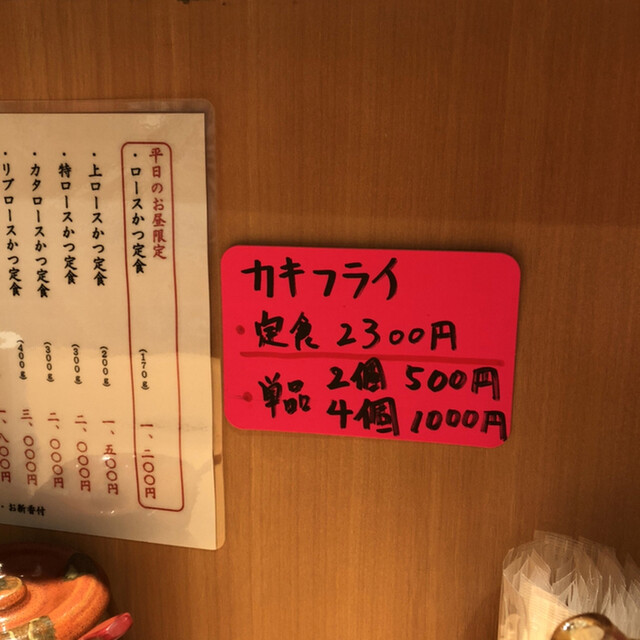 平日のお昼限定
・ロースかつ定食 (170g) 一、二〇〇円
・上ロースかつ定食 (200g) 一、五〇〇円
・特ロースかつ定食 (300g) 二、〇〇〇円
・カタロースかつ定食 (300g) 二、〇〇〇円
・リブロースかつ定食 (400g) 三、〇〇〇円
一、八〇〇円
・お新香付
カキフライ
・定食 2300円
・単品 2個 500円
4個 1000円